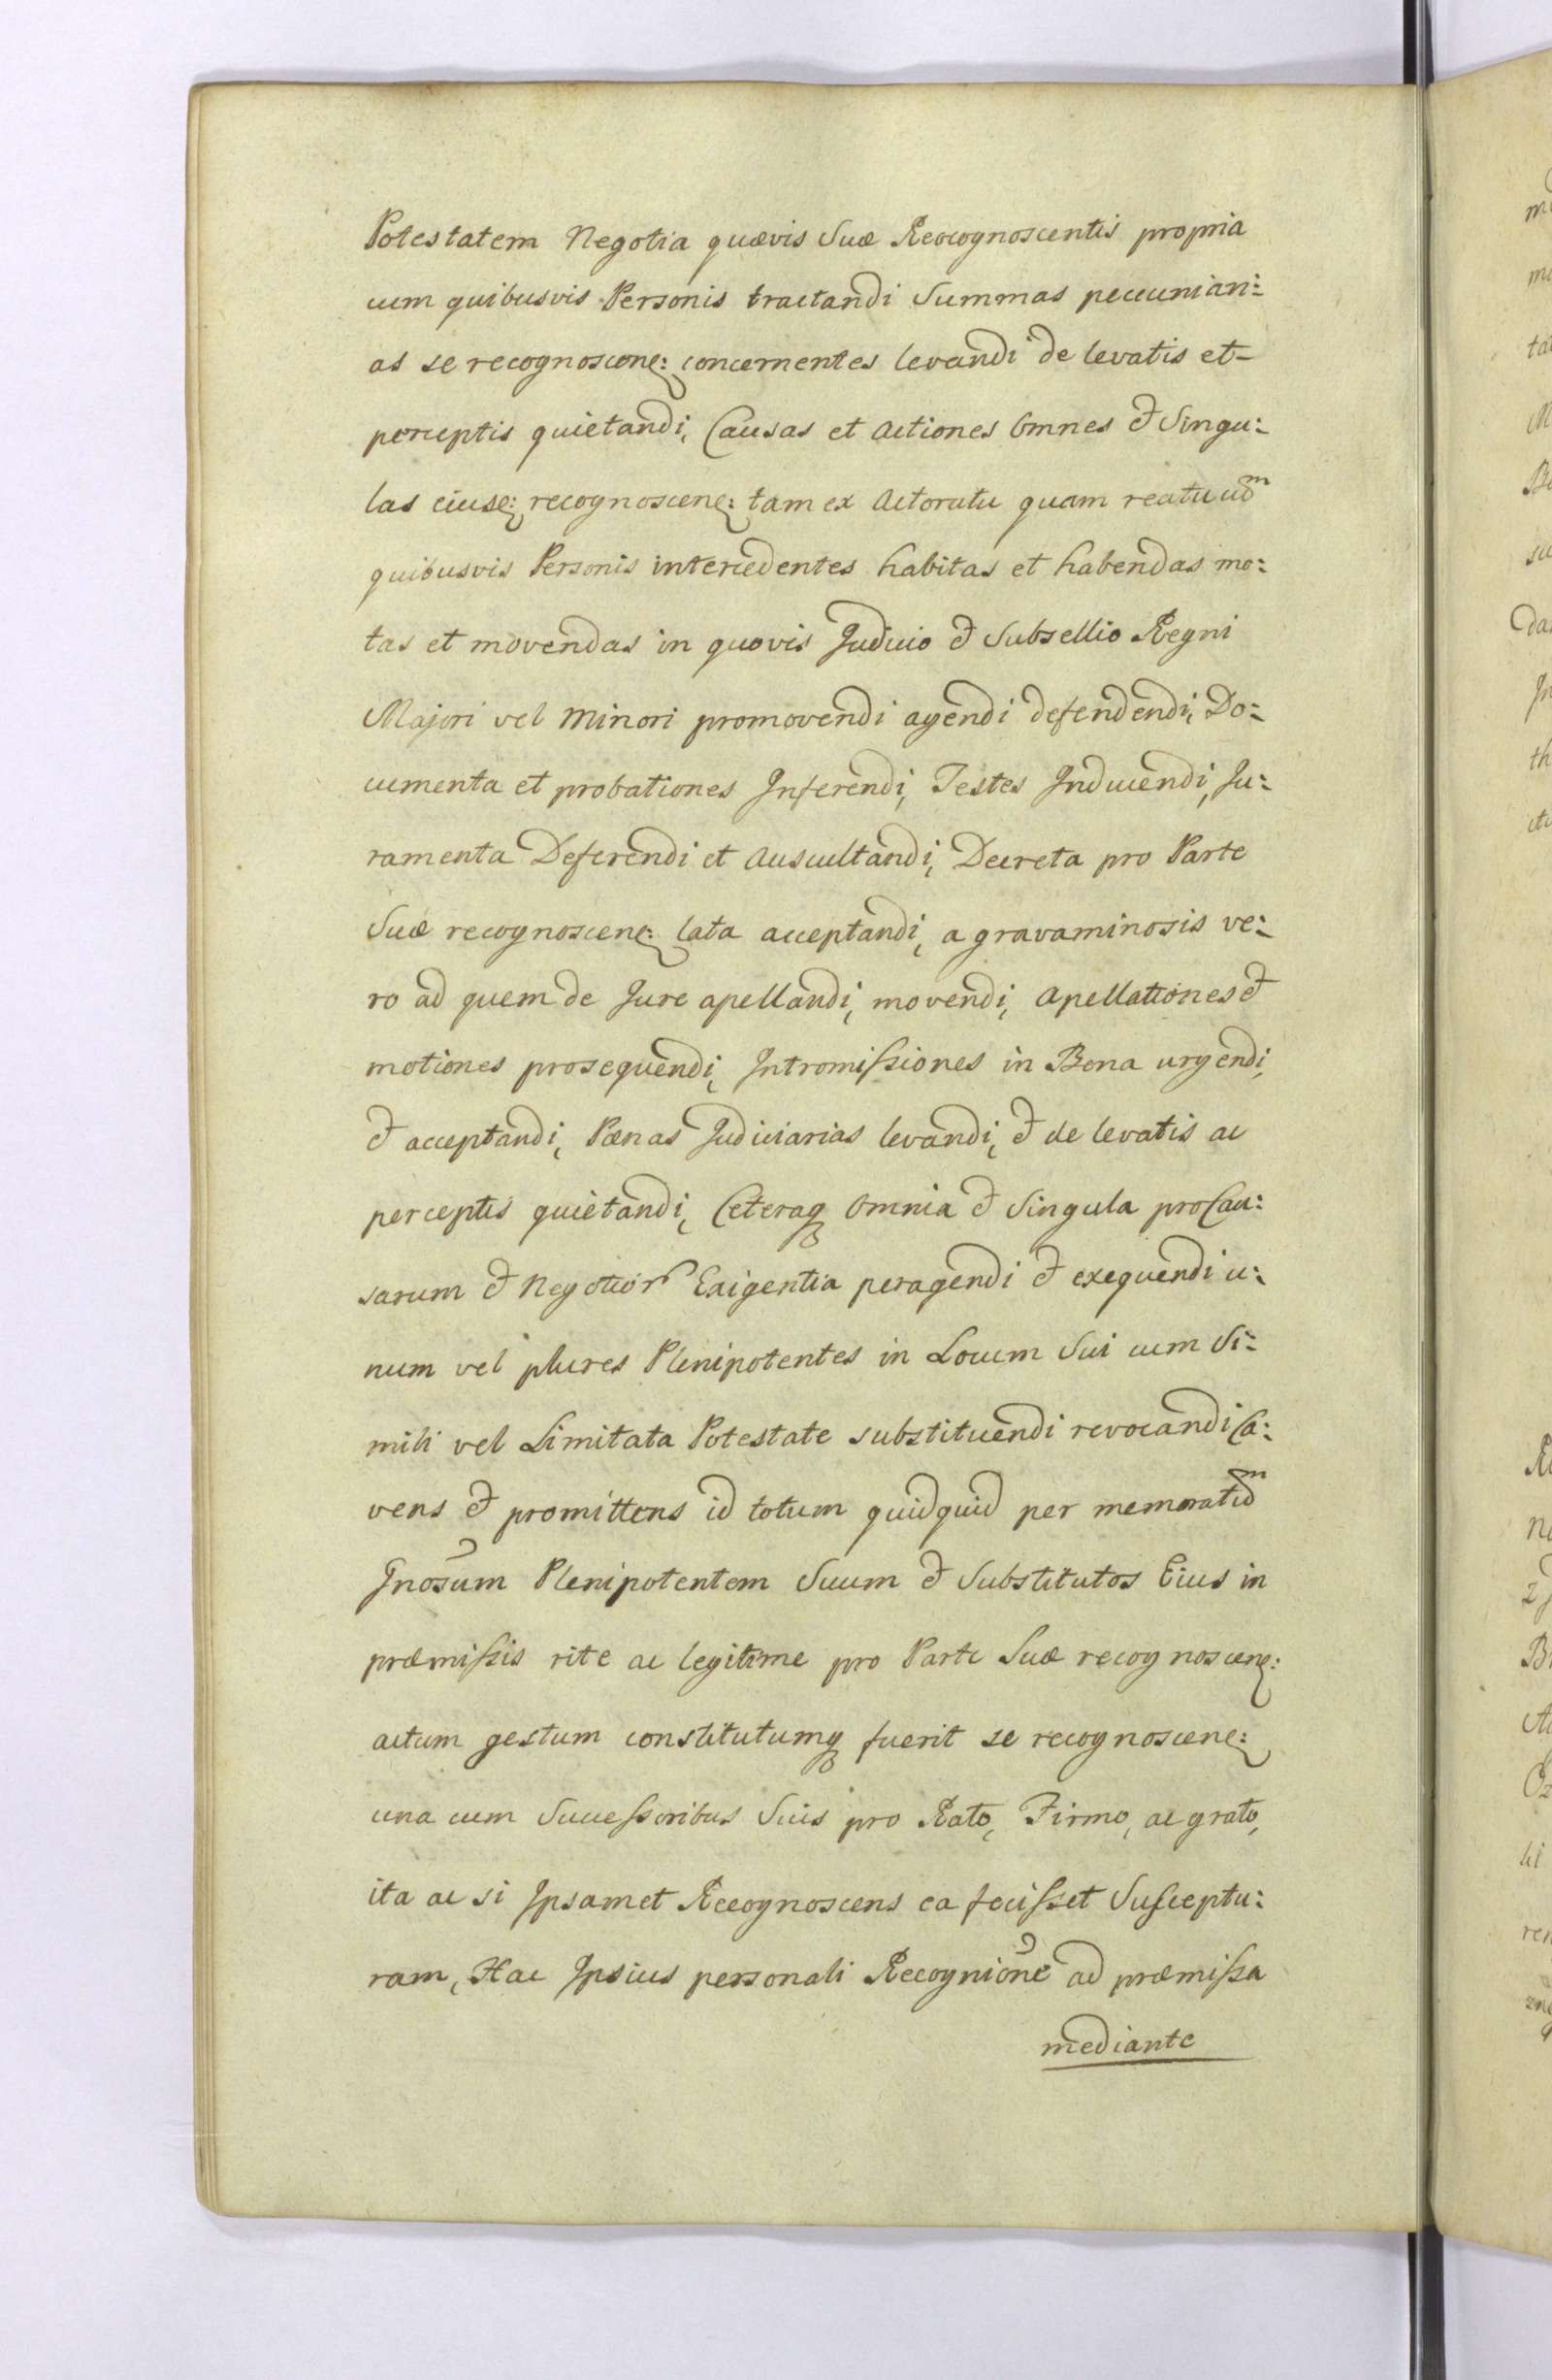 Potestatem Negotia quævis Suæ Reocognoscentis propria
cum quibusvis Personis tractandi Summas peccuniari:
as se recognoscene: concernentes levandi de levatis et
perceptis quietandi, Causas et Actiones Omnes et Singu:
las eiuse: recognoscene: tam ex Actoratu quam reatu cum
quibusvis Personis intercedentes habitas et habendas mo:
tas et movendas in quovis Judicio et Subsellio Regni
Majori vel Minori promovendi agendi defendendi, Do:
cumenta et probationes Inferendi, Testes Inducendi, Ju:
ramenta Deferendi et Auscultandi, Decreta pro Parte
Suæ recognoscene: lata acceptandi, a gravaminosis ve:
ro ad quem de Jure apellandi, movendi, Apellationes et
motiones prosequendi, Intromissiones in Bona urgendi,
et acceptandi, Pænas Judiciarias levandi, et de levatis ac
perceptis quietandi, Ceteraq Omnia et Singula pro Cau:
sarum et Negotior Exigentia peragendi et exequendi u:
num vel plures Plenipotentes in Locum Sui cum Si:
mili vel Limitata Potestate substituendi revocandi Ca:
vens et promittens id totum quidquid per memoratum
Gnosum Plenipotentem Suum et Substitutos Eius in
præmissis rite ac legitime pro Parte Suæ recognoscene:
actum gestum constitutumq fuerit se recognoscene:
una cum Successoribus Suis pro Rato, Firmo, ac grato,
ita ac si Ipsamet Recognoscens ea fecisset Susceptu:
ram, Hac Ipsius personali Recognione ad præmissa
mediante